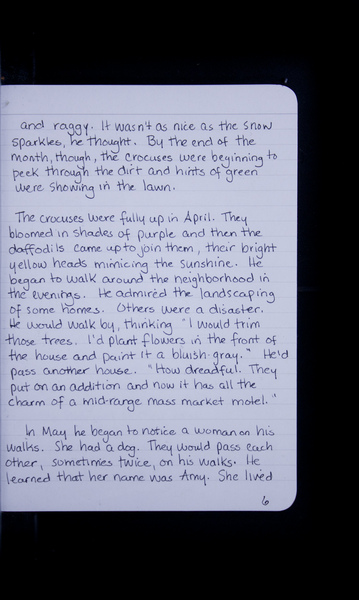 and raggy. It wasn't as nice as the snow
sparkles, he thought. By the end of the
month, though, the crocuses were beginning to
peek through the dirt and hints of green
were showing in the lawn.
The crocuses were fully up in April. They
bloomed in shades of purple and then the
daffodils came up to join them, their bright
yellow heads mimicing the sunshine. He
began to walk around the neighborhood in
the evenings. He admired the landscaping
of some homes. Others were a disaster.
He would walk by, thinking "I would trim
those trees. I'd plant flowers in the front of
the house and paint it a bluish-gray." He'd
pass another house. "How dreadful. They
put on an addition and now it has all the
charm of a mid-range mass market motel."
In May he began to notice a woman on his
walks. She had a dog. They would pass each
other, sometimes twice, on his walks. He
learned that her name was Amy. She lived
6